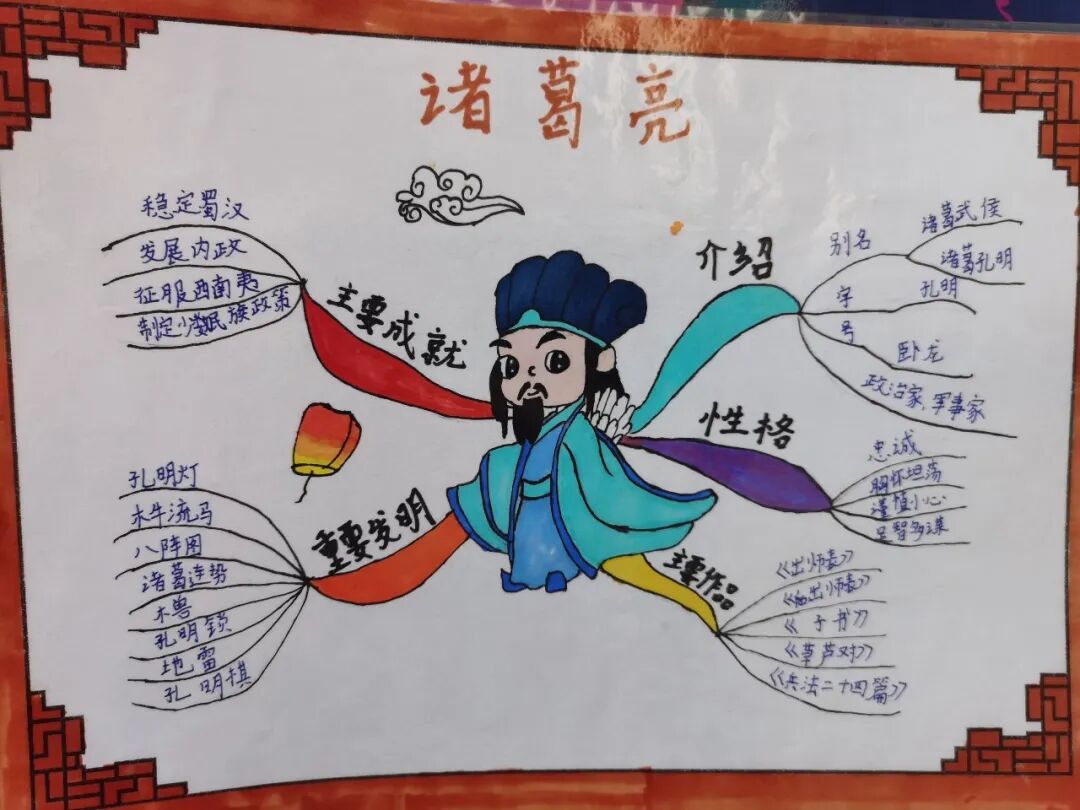 诸葛亮
主要成就
稳定蜀汉
发展内政
征服西南夷
制定少数民族政策
重要发明
孔明灯
木牛流马
八阵图
诸葛连势
木兽
孔明锁
地雷
孔明棋
介绍
别名
诸葛武侯
诸葛孔明
字
孔明
号
卧龙
政治家、军事家
性格
忠诚
胸怀坦荡
谨慎小心
足智多谋
主要作品
《出师表》
《后出师表》
《 子书》
《草芦对》
《兵法二十四篇》